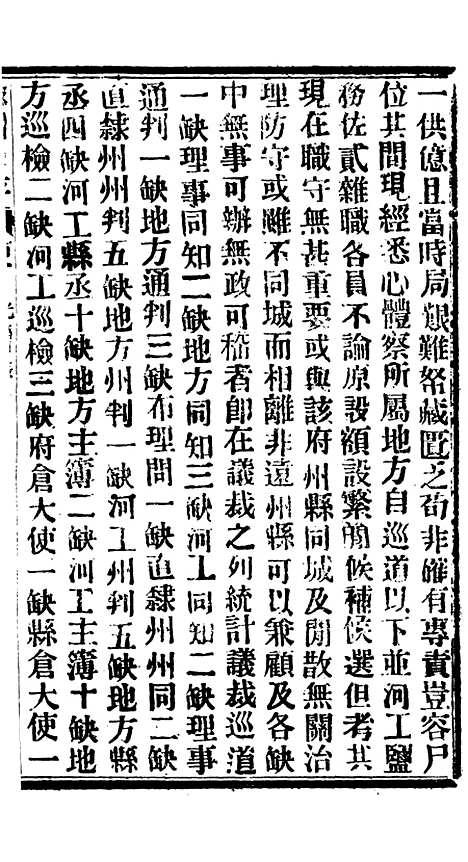 一供億且當時局艱難帑藏匱乏苟非確有專責豈容尸
位其間現經悉心體察所屬地方自巡道以下並河工鹽
務佐貳雜職各員不論原設額設繁簡候補候選但考其
現在職守無甚重要或與該府州縣同城及閒散無關治
理防守或雖不同城而相離非遠州縣可以兼顧及各缺
中無事可辦無政可稽者卽在議裁之列統計議裁巡道
一缺理事同知二缺地方同知三缺河工同知二缺理事
通判一缺地方通判三缺布理問一缺直隸州州同二缺
直隸州州判五缺地方州判一缺河工州判五缺地方縣
丞四缺河工縣丞十缺地方主簿二缺河工主簿十缺地
方巡檢二缺河工巡檢三缺府倉大使一缺縣倉大使一